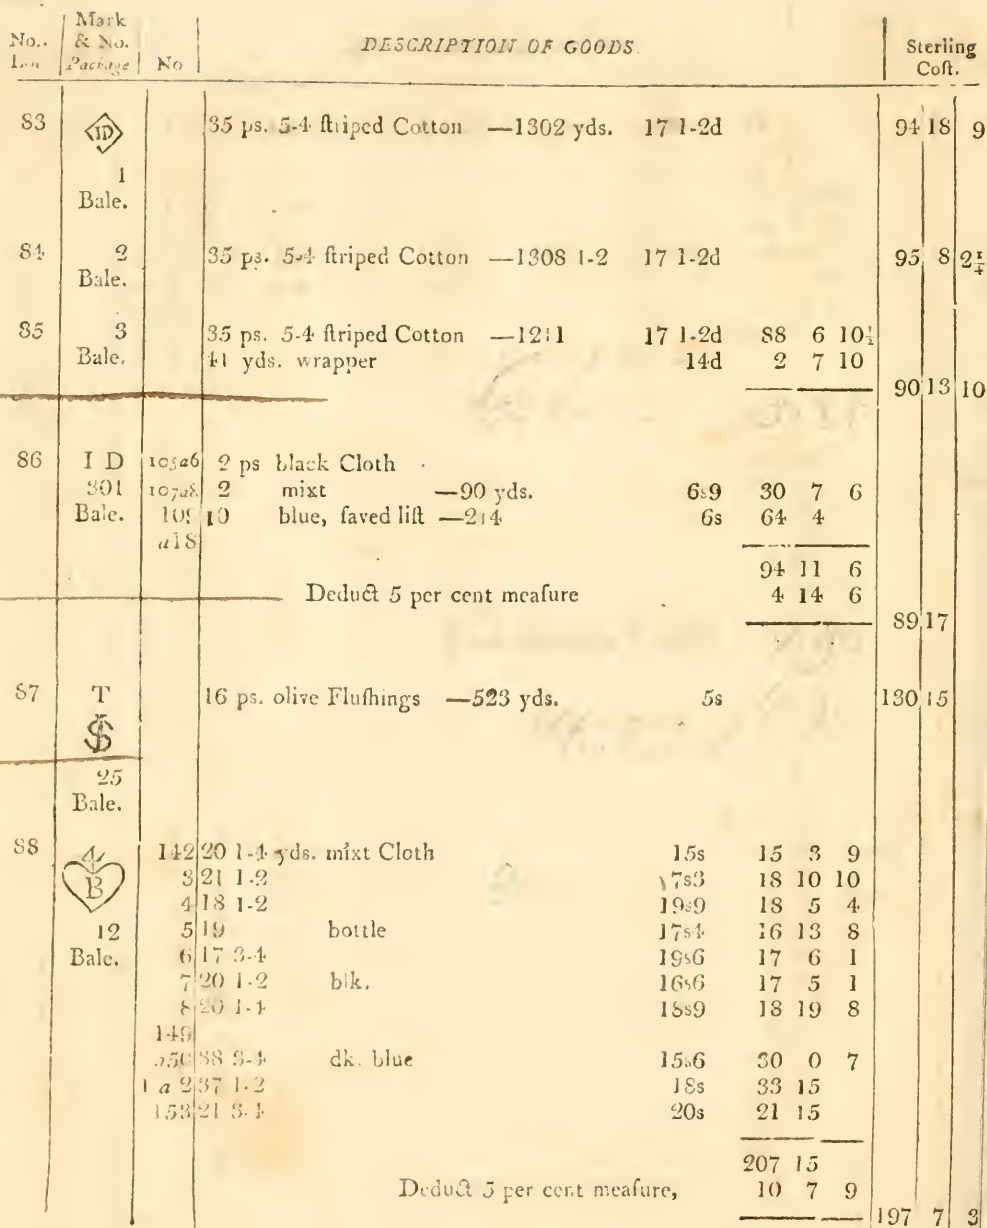 Mark
No.. & No. DESCRIPTION OF GOODS. Sterling
Package No Coſt.
83 ID 35 ps. 5-4 ſtriped Cotton —1302 yds. 17 1-2d 94 18 9
1
Bale.
84 2 35 ps. 5-4 ſtriped Cotton —1308 1-2 17 1-2d 95 8 2¼
Bale.
85 3 35 ps. 5-4 ſtriped Cotton 17 1-2d 88 6 10½
Bale. 41 yds. wrapper 14d 2 7 10
90 13 10
86 I D 105a6 2 ps black Cloth
301 107a8 2 mixt —90 yds. 6s9 30 7 6
Bale. 109 10 blue, ſaved liſt —214 6s 64 4
a18
94 11 6
Deduct 5 per cent meaſure 4 14 6
89 17
87 T 16 ps. olive Fluſhings —523 yds. 5s 130 15
25
Bale.
88 4 142 20 1-4 yds. mixt Cloth 15s 15 3 9
B 3 21 1-2 17s3 18 10 10
4 18 1-2 19s9 18 5 4
12 5 19 bottle 17s4 16 13 8
Bale. 6 17 3-4 19s6 17 6 1
7 20 1-2 blk. 16s6 17 5 1
8 20 1-4 18s9 18 19 8
149
a50 38 3-4 dk. blue 15s6 30 0 7
1 a 2 37 1-2 18s 33 15
153 21 3-4 20s 21 15
207 15
Deduct 5 per cent meaſure, 10 7 9
197 7 3